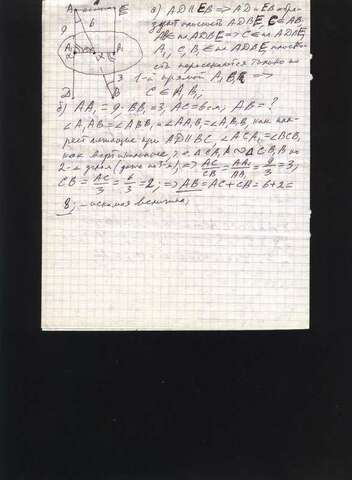 а) AD∥EB => AD и EB обра-
зуют плоскость ADBE, C ∈ AB
AB ∈ пл ADBE => C ∈ пл ADBE,
A₁, C, B₁ ∈ пл ADBE, плоско-
сть пересекаются только по
1-й прямой A₁B₁ =>
C ∈ A₁B₁
б) AA₁ = 9, BB₁ = 3, AC = 6 см, AB = ?
∠A₁AB = ∠ABB₁ = ∠AA₁B₁ = ∠A₁B₁B, как нак-
рест лежащие при AD∥BC ∠ACA₁ = ∠BCB₁
как вертикальные, => △ACA₁ ∞ △CB₁B по
2-м углам => AC/CB = AA₁/BB₁ = 9/3 = 3;
CB = AC/3 = 6/3 = 2; => AB = AC + CB = 6+2 =
8; – искомая величина,
A
E
9
6
A₁
B₁
C
α
3
D
B